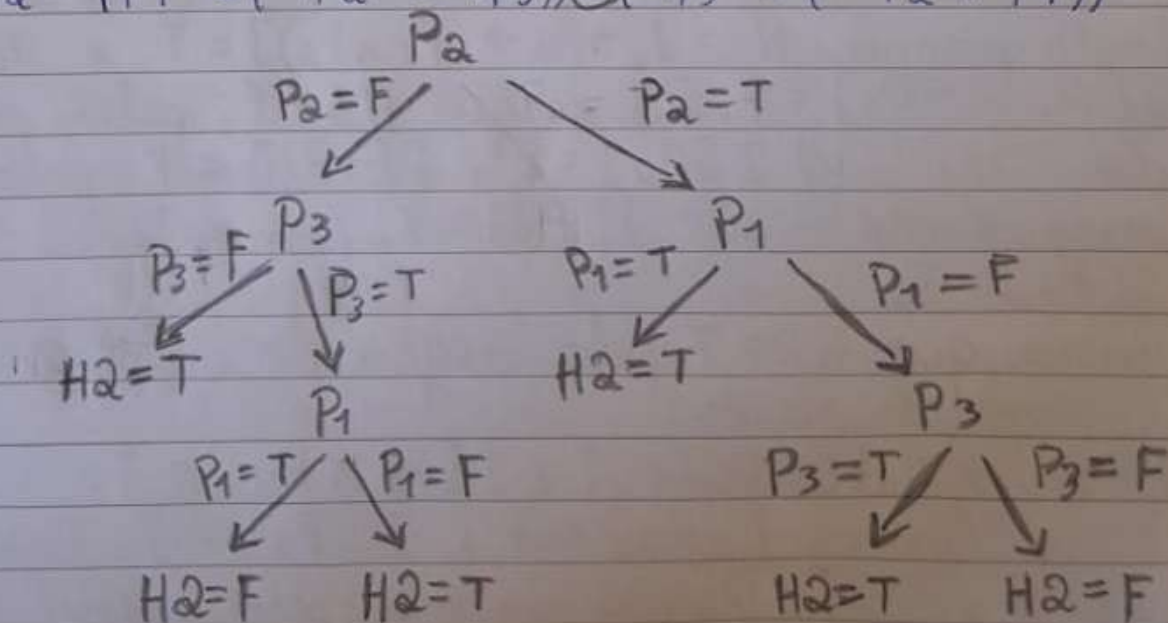 P2
P2=F P2=T
P3 P1
P3=F P3=T P1=T P1=F
H2=T H2=T
P1 P3
P1=T P1=F P3=T P3=F
H2=F H2=T H2=T H2=F